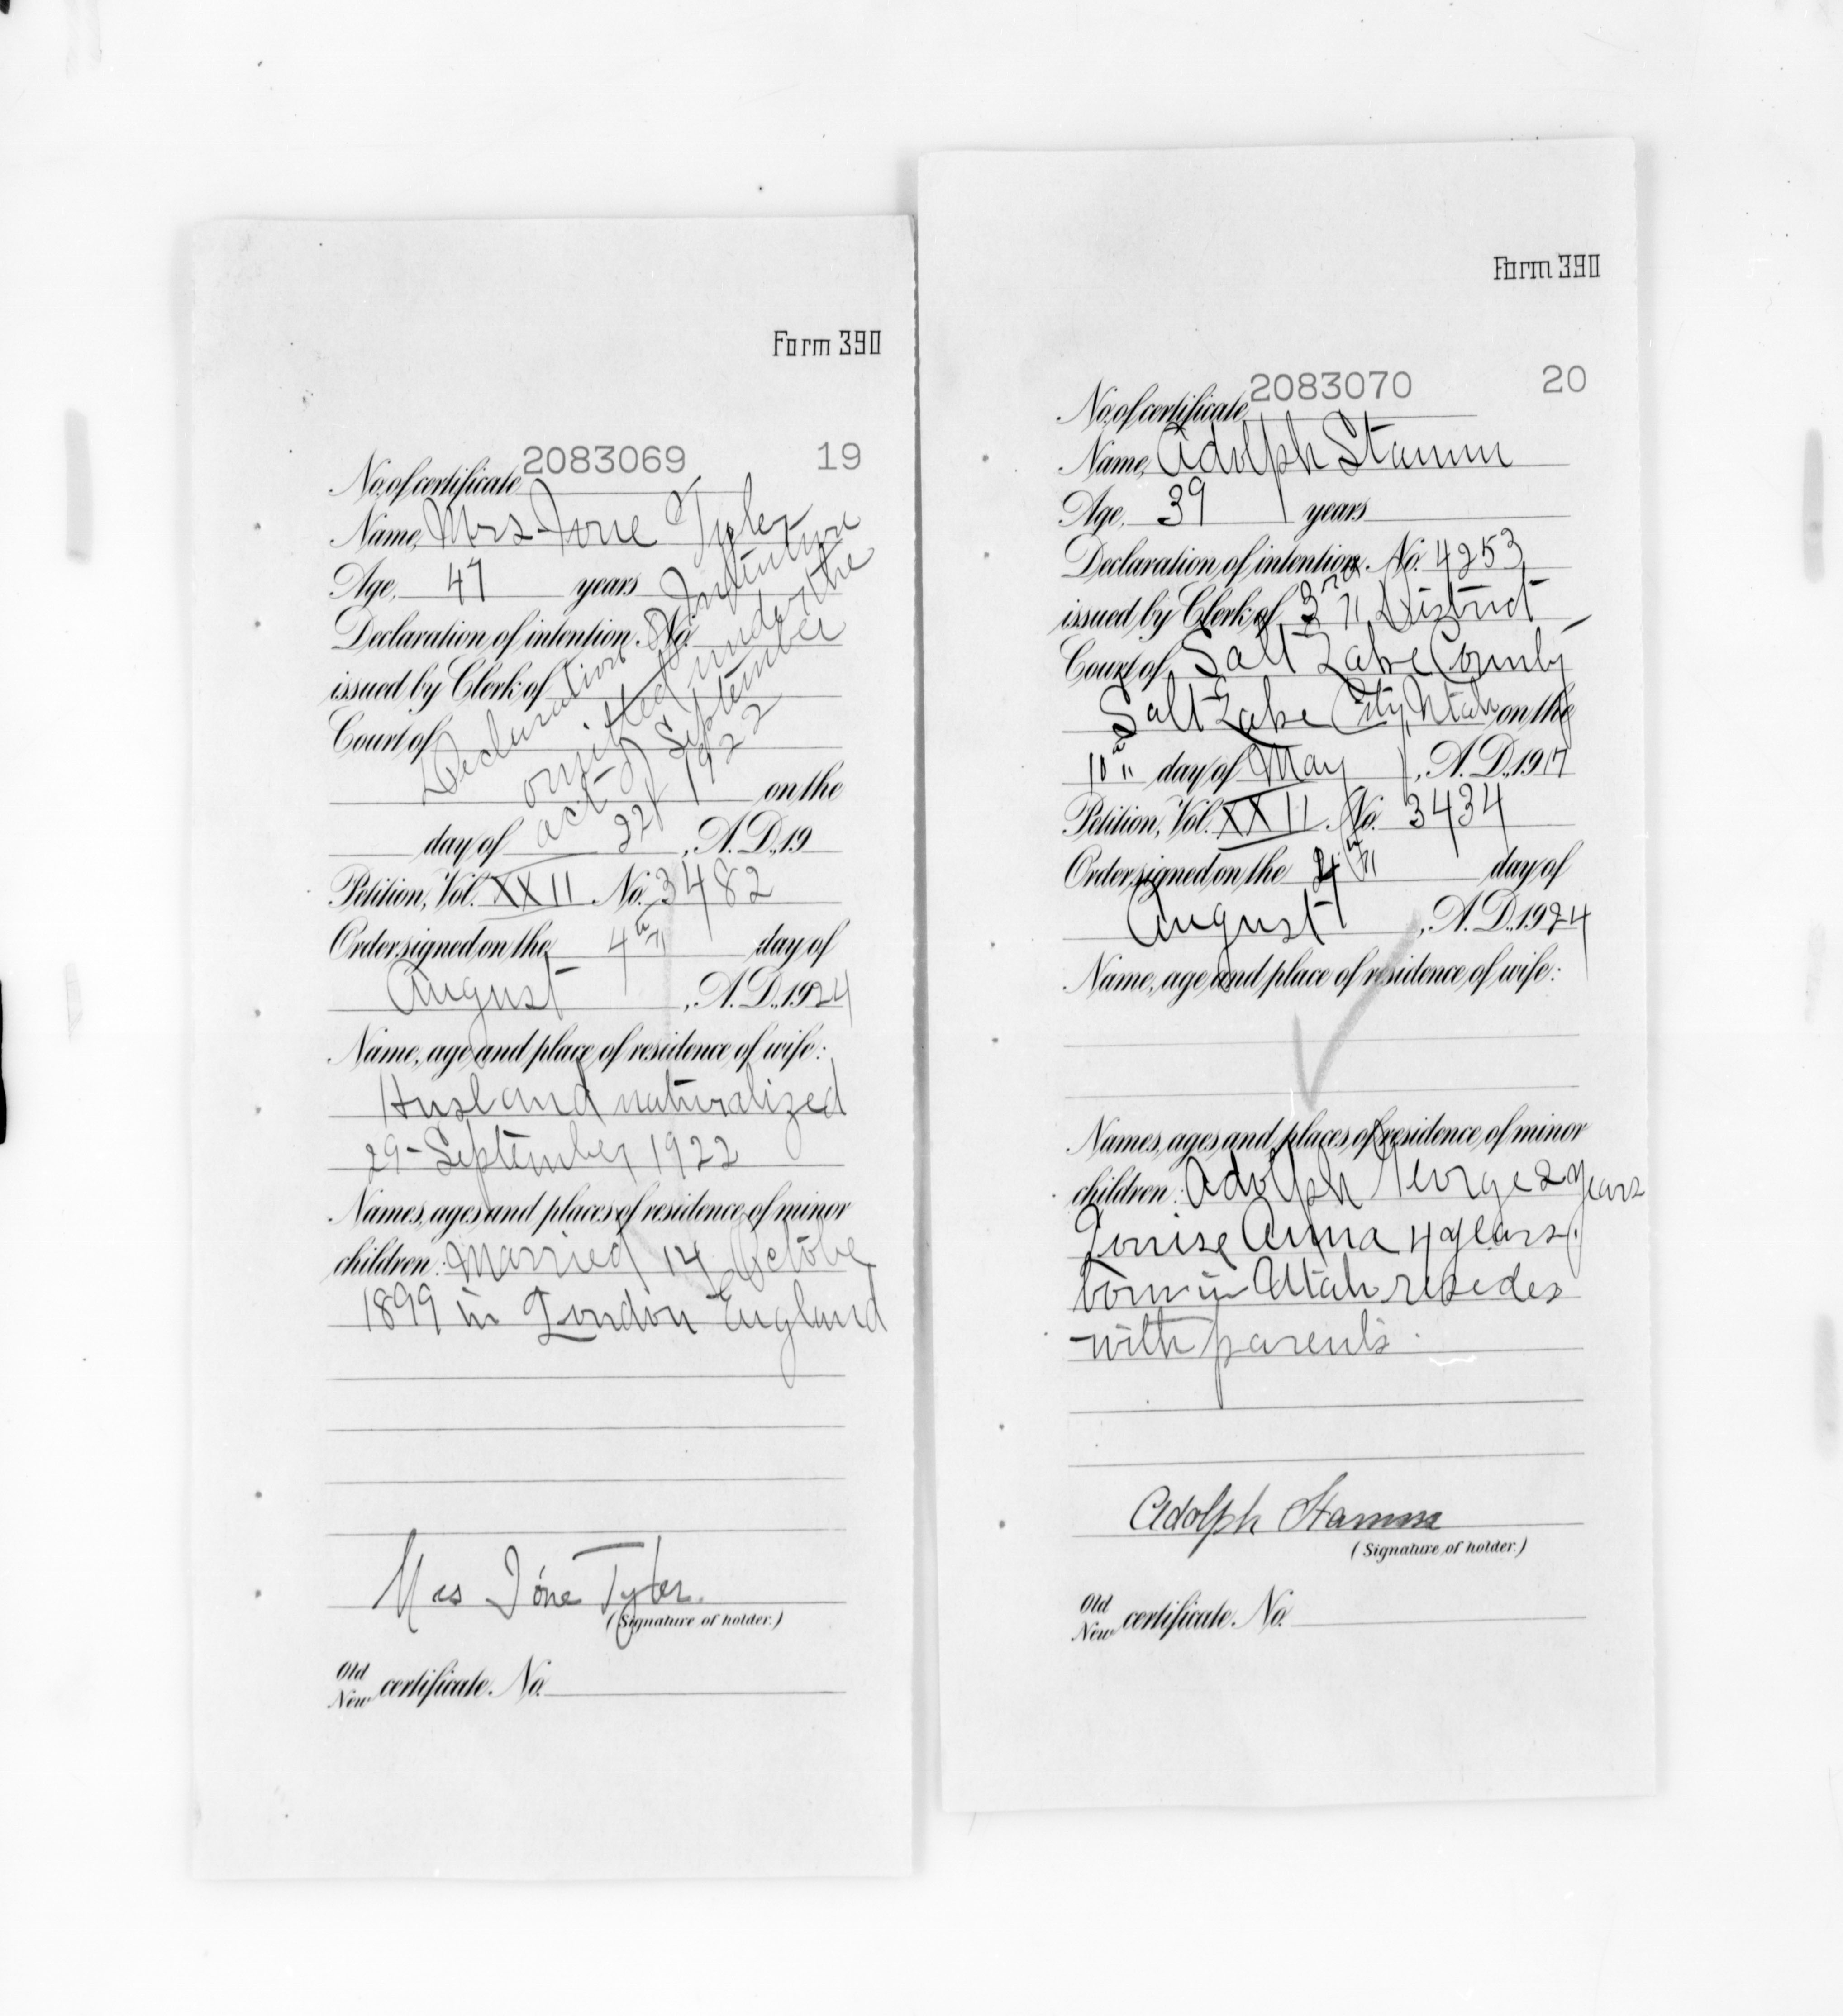 Form 390
2083069 19
No. of certificate
Name, Mrs Ione Tyler
Age, 47 years
Declaration of intention No.
issued by Clerk of
Court of
Declaration of Intention
omitted under the
act of September
22 1922
on the
day of , A. D., 19
Petition, Vol. XXII No. 3482
Order signed on the 4th day of
August , A. D., 1924
Name, age and place of residence of wife:
Husband naturalized
29-September 1922
Names, ages and places of residence of minor
children: Married 14 October
1899 in London England
Mrs Ione Tyler.
(Signature of holder.)
Old
New certificate No.
Form 390
2083070 20
No. of certificate
Name, Adolph Stamm
Age, 39 years
Declaration of intention No. 4253
issued by Clerk of 3rd District
Court of Salt Lake County
Salt Lake City, Utah on the
10th day of May , A. D., 1917
Petition, Vol. XXII No. 3434
Order signed on the 4th day of
August , A. D., 1924
Name, age and place of residence of wife:
Names, ages and places of residence of minor
children: Adolph George 2 years
Louise Anna 4 years.
born in Utah resides
with parents.
Adolph Stamm
(Signature of holder.)
Old
New certificate No.